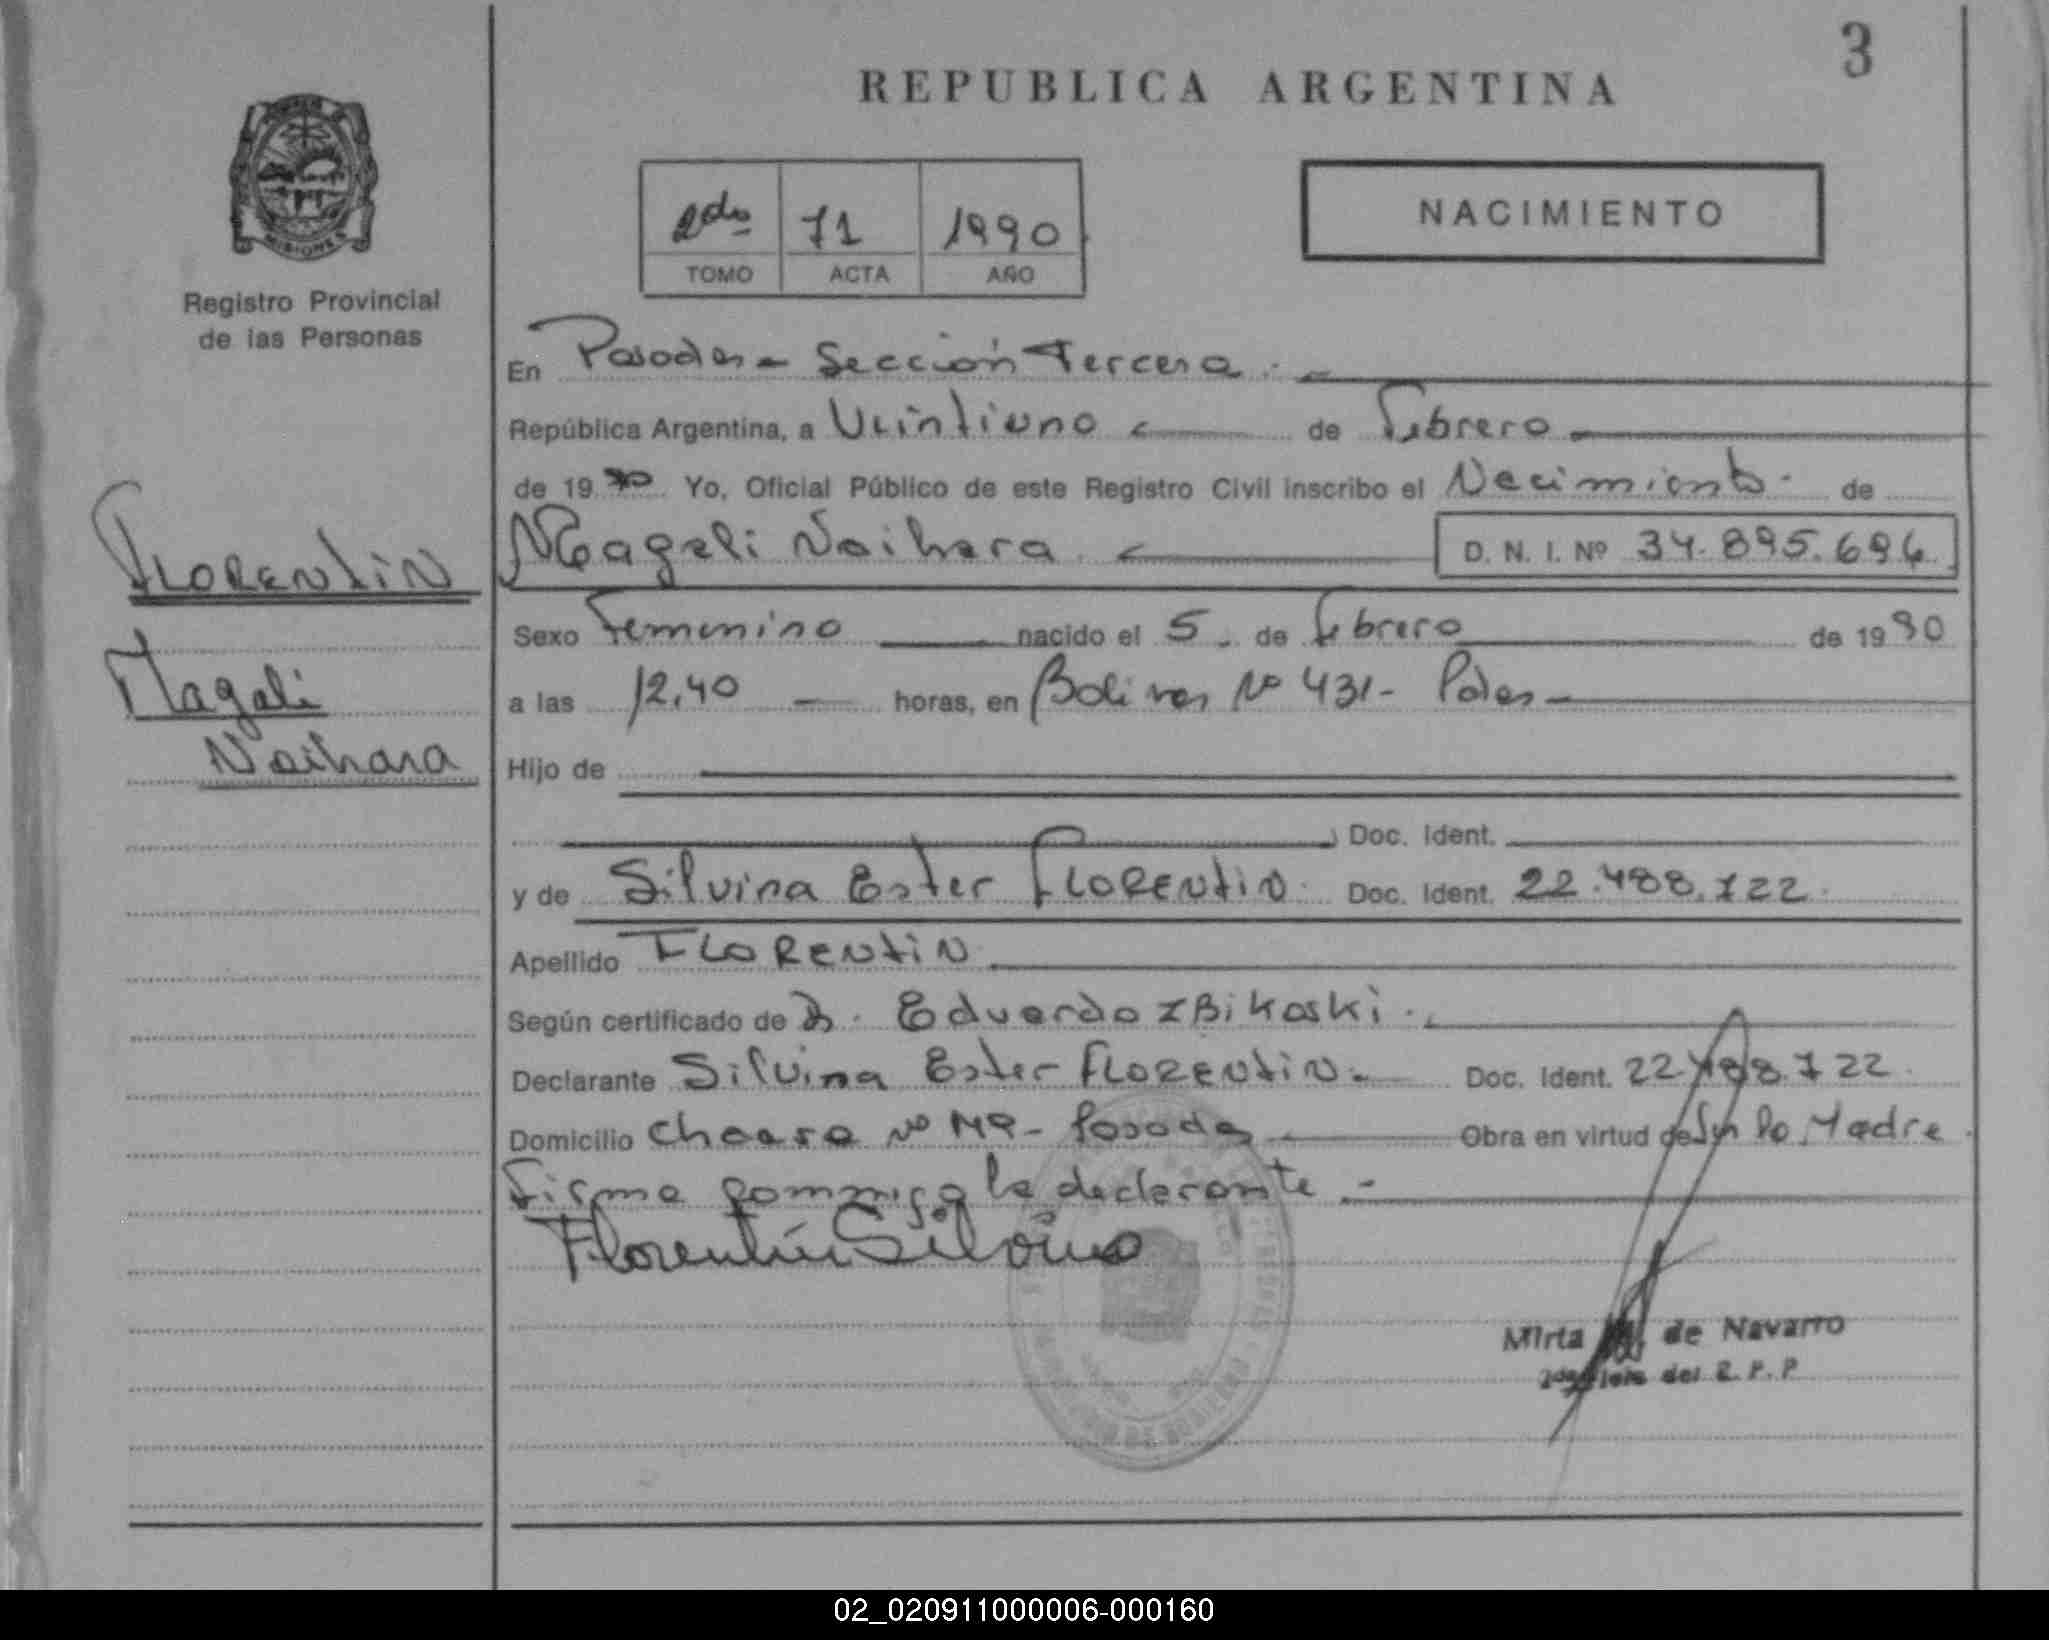 3
REPUBLICA ARGENTINA
MISIONES
Registro Provincial
de las Personas
2do 71 1990
TOMO ACTA AÑO
NACIMIENTO
En Posadas - Sección Tercera . -
República Argentina, a Veintiuno de Febrero
de 19 90 Yo, Oficial Público de este Registro Civil inscribo el Nacimiento . de
Magali Naihara D. N. I. Nº 34.895.694
FLORENtiN
Magali
Naihara
Sexo Femenino nacido el 5 . de Febrero de 19 90
a las 12,40 horas, en Bolivar Nº 431 - Pdas -
Hijo de
Doc. Ident.
y de Silvina Ester FLORENtiN . Doc. Ident. 22.488.722 .
Apellido FLORENtiN
Según certificado de Dr. Eduardo ZBiKoski . -
Declarante Silvina Ester FLORENtiN . - Doc. Ident. 22.488.722 .
Domicilio Chacra Nº - Posadas Obra en virtud de Ser la Madre .
Firma conmigo la declarante . -
Florentín Silvina
Mirta de Navarro
del R. P. P
02_020911000006-000160